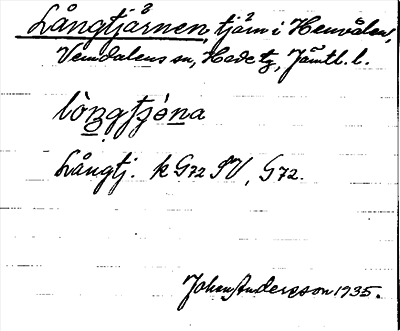 Långtjärnen, tjärn i Henvålen,
Vemdalens sn, Hede tg, Jämtl. l.
lòŋgtjə́na
Långtj. k G72 SV, G72.
Johan Andersson 1935.